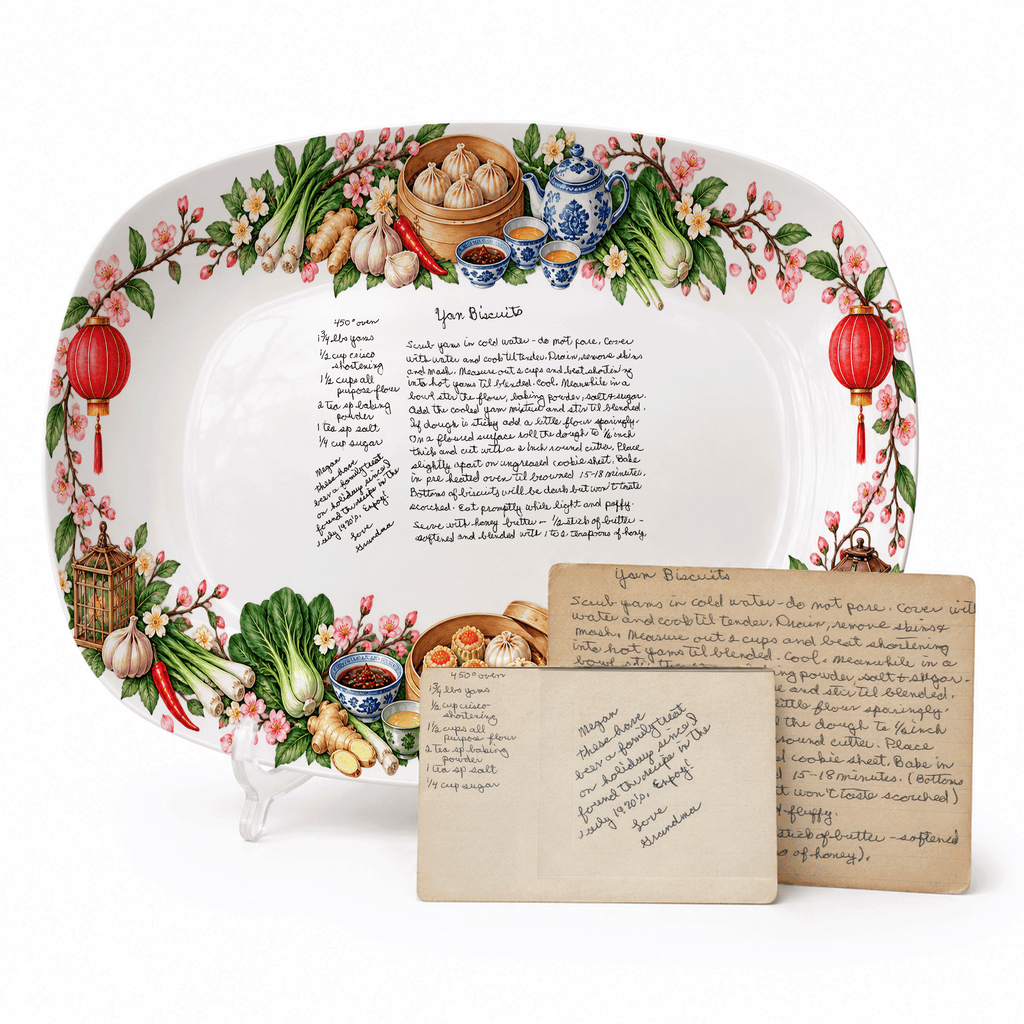 Yam Biscuits
450° oven
1 3/4 lbs yams
1/2 cup crisco
shortening
1 1/2 cups all
purpose flour
2 tea sp baking
powder
1 tea sp salt
1/4 cup sugar
Megan
these have
been a family treat
on holiday since I
found the recipe in the
early 1920's. Enjoy!
Love
Grandma
Scrub yams in cold water - do not pare. Cover
with water and cook til tender. Drain, remove skins
and mash. Measure out 2 cups and beat shortening
into hot yams til blended. Cool. Meanwhile in a
bowl stir the flour, baking powder, salt & sugar.
Add the cooled yam mixture and stir til blended.
If dough is sticky add a little flour sparingly.
On a floured surface roll the dough to 1/2 inch
thick and cut with a 2 inch round cutter. Place
slightly apart on ungreased cookie sheet. Bake
in pre heated oven til browned 15-18 minutes.
Bottoms of biscuits will be dark but won't taste
scorched. Eat promptly while light and puffy.
Serve with honey butter - 1/2 stick of butter -
softened and blended with 1 to 2 teaspoons of honey.
Yam Biscuits
Scrub yams in cold water - do not pare. Cover with
water and cook til tender. Drain, remove skins &
mash. Measure out 2 cups and beat shortening
into hot yams til blended - Cool. Meanwhile in a
bowl stir the
ng powder, salt & sugar -
e and stir til blended.
ttle flour sparingly.
the dough to 1/2 inch
round cutter. Place
cookie sheet. Bake in
15-18 minutes. (Bottoms
t won't taste scorched)
fluffy.
stick of butter - softened
of honey).
450° oven
1 3/4 lbs yams
1/2 cup crisco
shortening
1 1/2 cups all
purpose flour
2 tea sp baking
powder
1 tea sp salt
1/4 cup sugar
Megan
these have
been a family treat
on holiday since I
found the recipe in the
early 1920's. Enjoy!
Love
Grandma